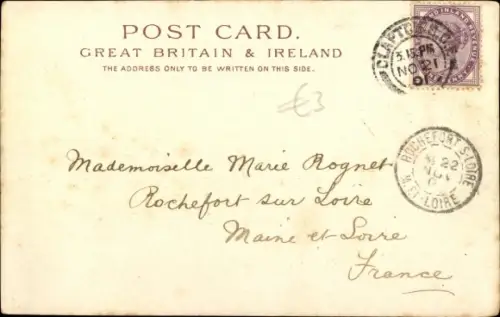 POST CARD.
GREAT BRITAIN & IRELAND
THE ADDRESS ONLY TO BE WRITTEN ON THIS SIDE.
CLAPTON
5.15 PM
NO 21
01
£3
ROCHEFORT S-LOIRE
22
NOV
M.ET-LOIRE
Mademoiselle Marie Rognet
Rochefort sur Loire
Maine et Loire
France